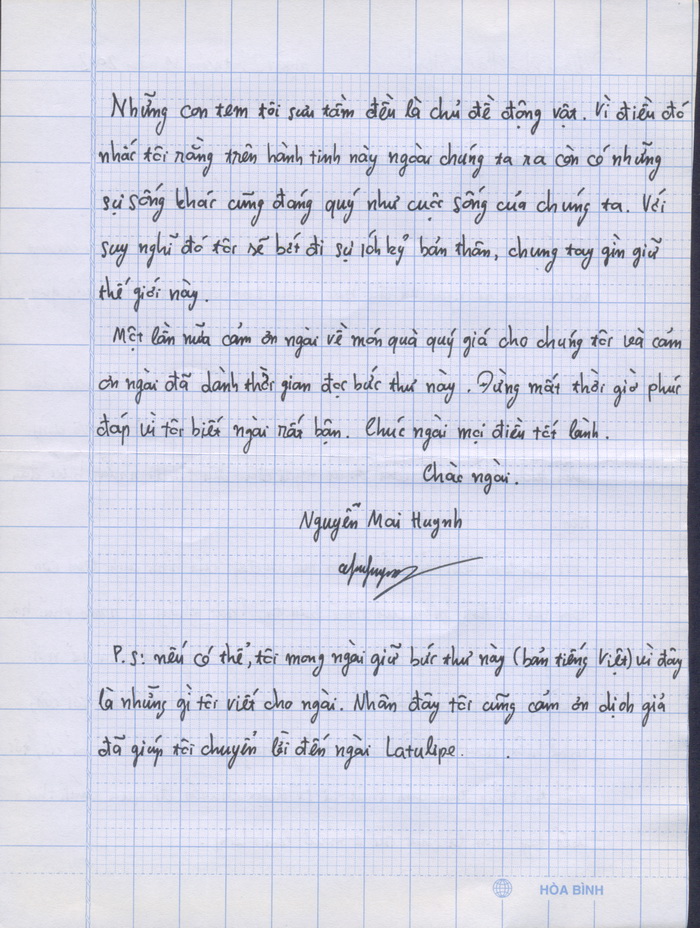 Những con tem tôi sưu tầm đều là chủ đề động vật. Vì điều đó
nhắc tôi rằng trên hành tinh này ngoài chúng ta ra còn có những
sự sống khác cũng đáng quý như cuộc sống của chúng ta. Với
suy nghĩ đó tôi sẽ bớt đi sự ích kỷ bản thân, chung tay gìn giữ
thế giới này.
Một lần nữa cảm ơn ngài về món quà quý giá cho chúng tôi và cám
ơn ngài đã dành thời gian đọc bức thư này. Đừng mất thời giờ phúc
đáp vì tôi biết ngài rất bận. Chúc ngài mọi điều tốt lành.
Chào ngài.
Nguyễn Mai Huynh
P.S: nếu có thể, tôi mong ngài giữ bức thư này (bản tiếng Việt) vì đây
là những gì tôi viết cho ngài. Nhân đây tôi cũng cám ơn dịch giả
đã giúp tôi chuyển lời đến ngài Latulipe.
HÒA BÌNH